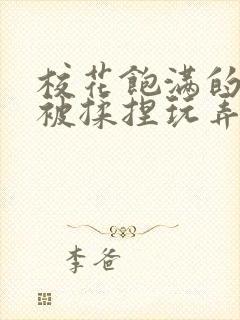 校花飽满的
被揉捏玩弄
李爸